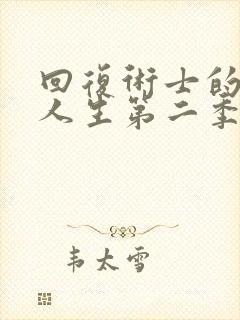 回復術士的
人生第二季
韦太雪